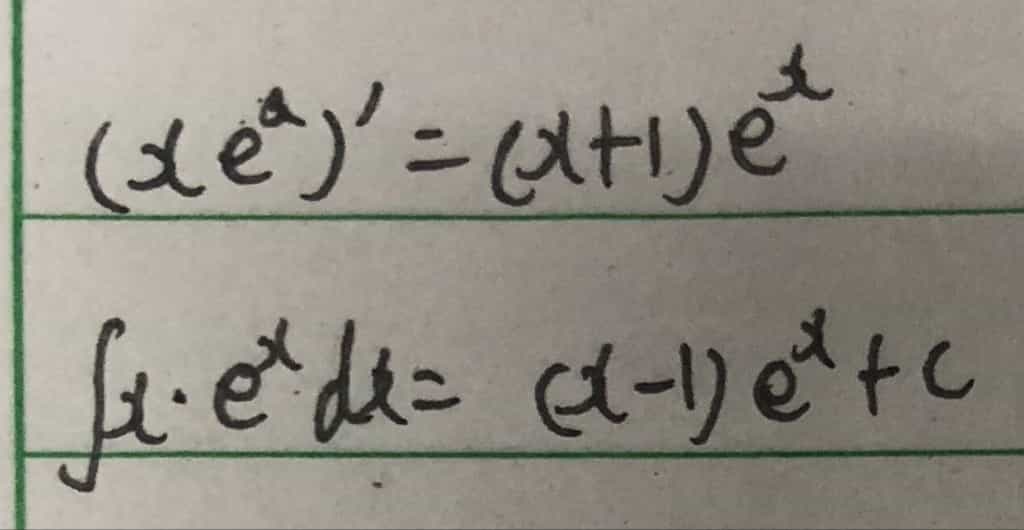 (x eˣ)' = (x+1) eˣ
∫x · eˣ dx = (x-1) eˣ + c